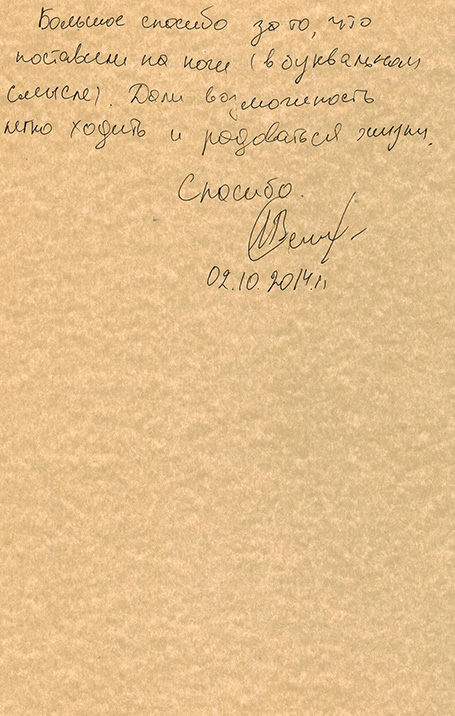 Большое спасибо за то, что
поставили на ноги (в буквальном
смысле). Дали возможность
легко ходить и радоваться жизни.
Спасибо.
02.10.2014г.